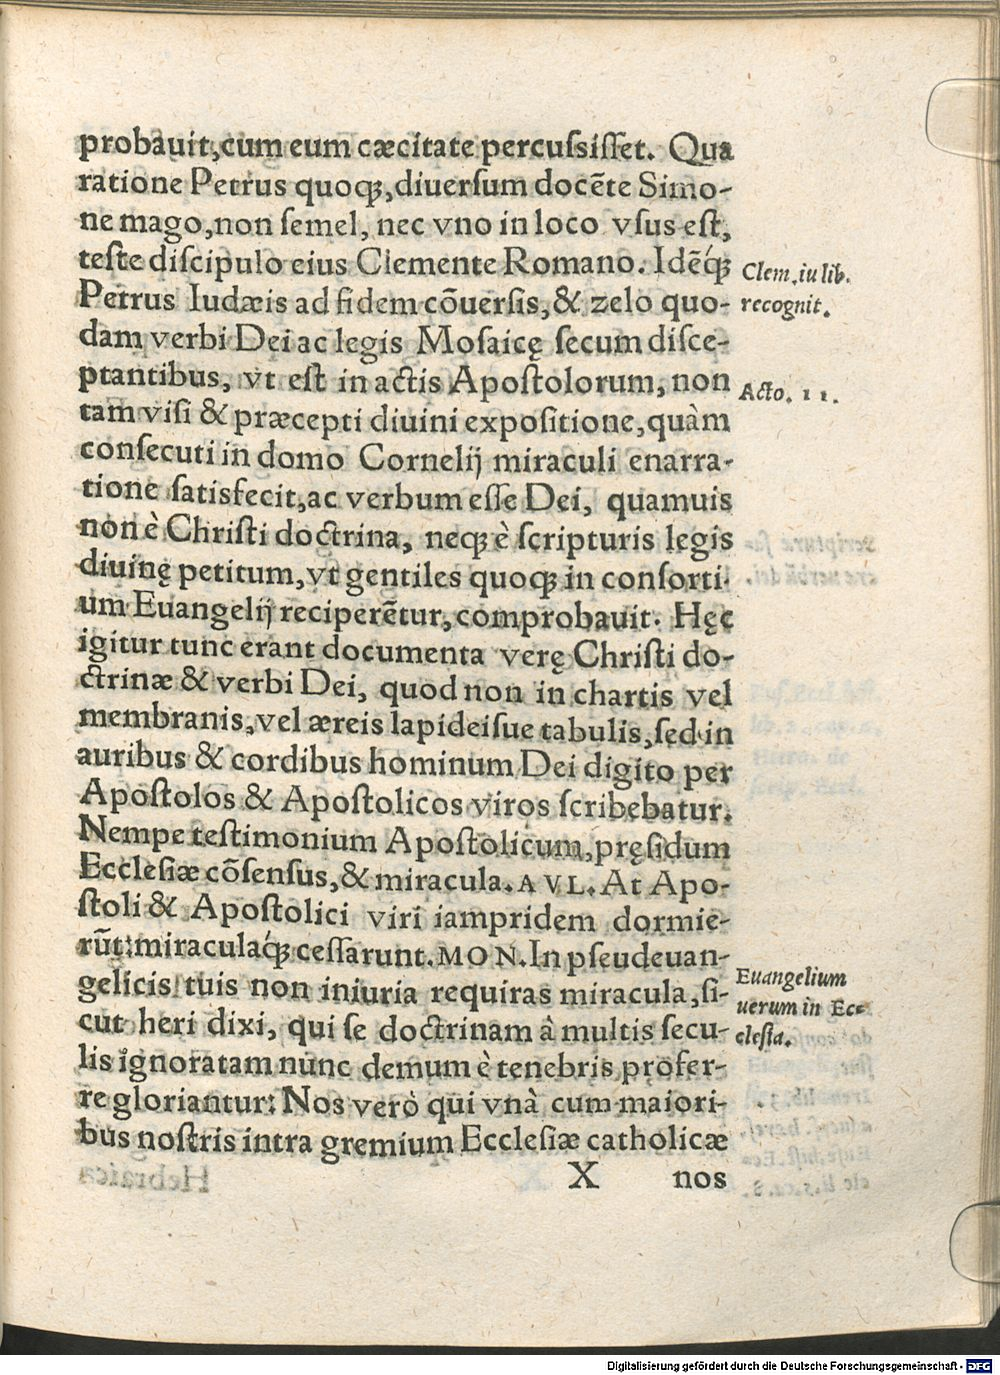 probauit, cum eum cæcitate percuſsiſſet. Qua
ratione Petrus quoq́;, diuerſum docẽte Simo-
ne mago, non ſemel, nec vno in loco vſus eſt,
teſte diſcipulo eius Clemente Romano. Idẽq́;
Clem. in lib.
Petrus Iudæis ad fidem cõuerſis, & zelo quo-
recognit.
dam verbi Dei ac legis Moſaicę ſecum diſce-
ptantibus, vt eſt in actis Apoſtolorum, non
Acto. 11.
tam viſi & præcepti diuini expoſitione, quàm
conſecuti in domo Cornelij miraculi enarra-
tione ſatisfecit, ac verbum eſſe Dei, quamuis
non è Chriſti doctrina, neq; è ſcripturis legis
diuinę petitum, vt gentiles quoq; in conſorti-
um Euangelij reciperẽtur, comprobauit. Hęc
igitur tunc erant documenta verę Chriſti do-
ctrinæ & verbi Dei, quod non in chartis vel
membranis, vel æreis lapideiſue tabulis, ſed in
auribus & cordibus hominum Dei digito per
Apoſtolos & Apoſtolicos viros ſcribebatur.
Nempe teſtimonium Apoſtolicum, pręſidum
Eccleſiæ cõſenſus, & miracula. AVL. At Apo-
ſtoli & Apoſtolici viri iampridem dormie-
rũt: miraculaq́; ceſſarunt. MON. In pſeudeuan-
gelicis tuis non iniuria requiras miracula, ſi-
Euangelium
cut heri dixi, qui ſe doctrinam â multis ſecu-
uerum in Ec-
cleſia.
lis ignoratam nunc demum è tenebris profer-
re gloriantur: Nos verò qui vnà cum maiori-
bus noſtris intra gremium Eccleſiæ catholicæ
X nos
Digitalisierung gefördert durch die Deutsche Forschungsgemeinschaft - DFG